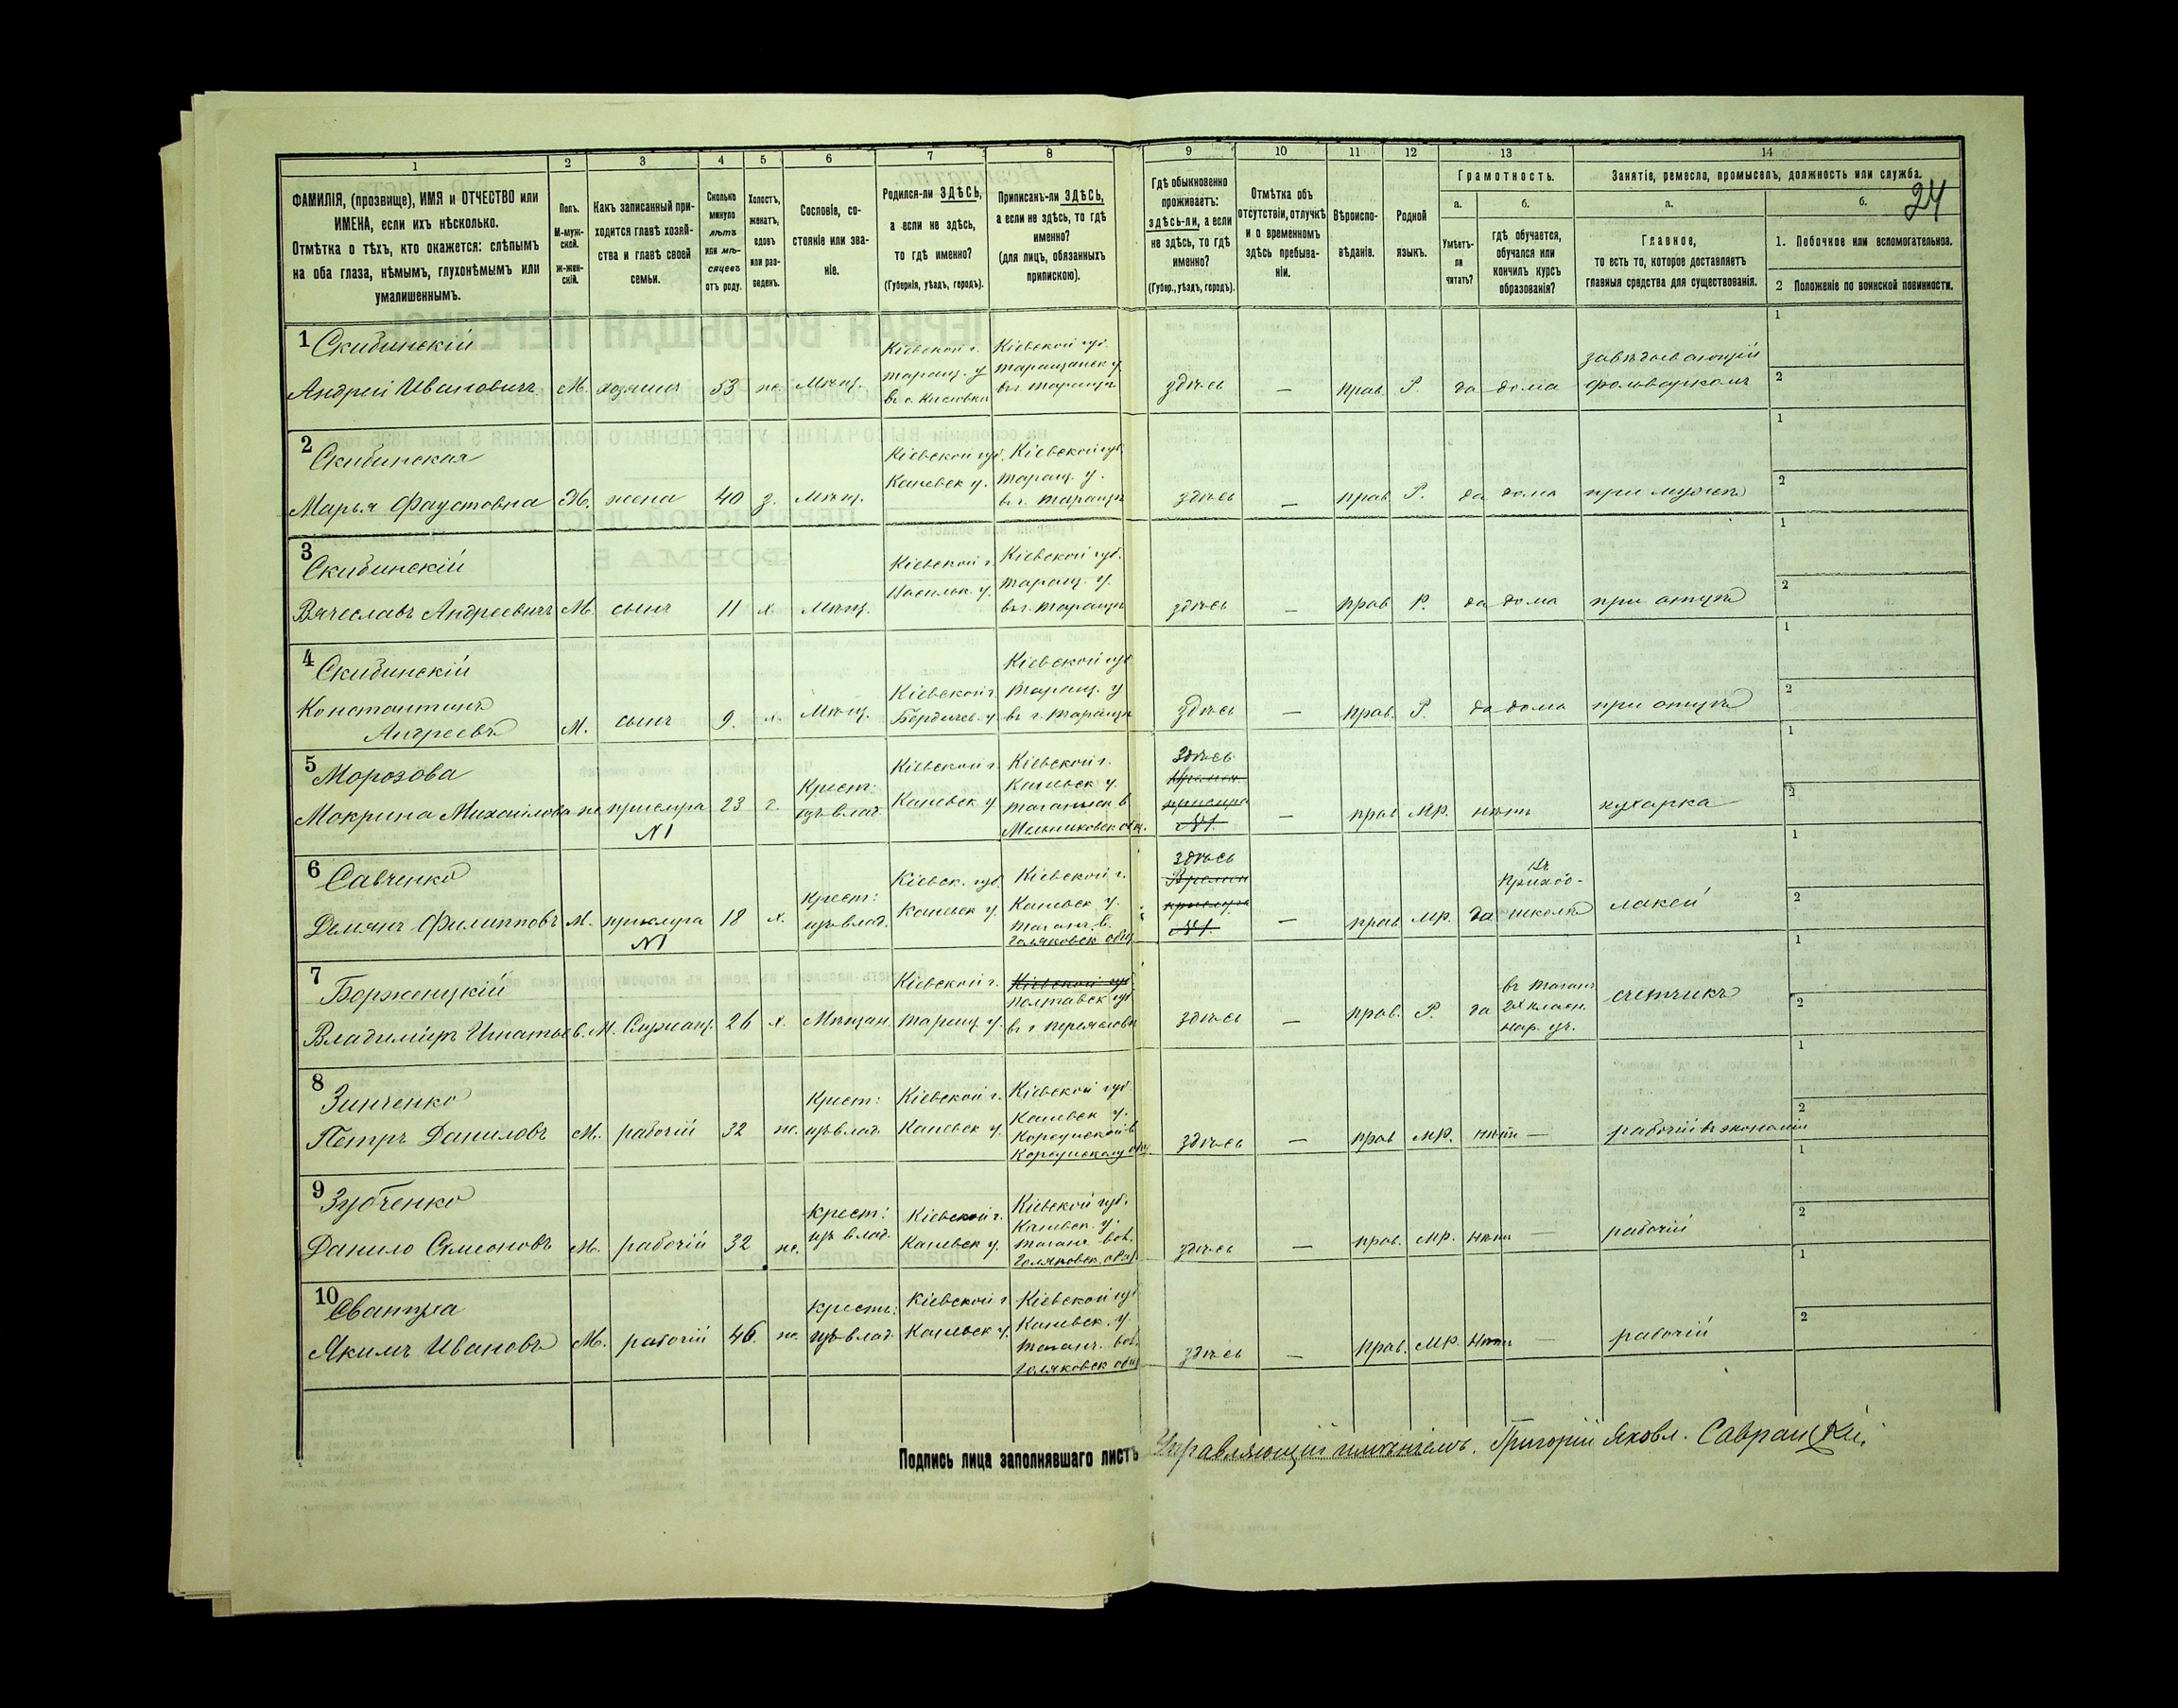 1 2 3 4 5 6 7 8 9 10 11 12 13 14
ФАМИЛІЯ, (прозвище), ИМЯ и ОТЧЕСТВО или
ИМЕНА, если ихъ нѣсколько.
Отмѣтка о тѣхъ, кто окажется: слѣпымъ
на оба глаза, нѣмымъ, глухонѣмымъ или
умалишеннымъ.
Полъ.
М-муж-
ской.
ж-жен-
скій.
Какъ записанный при-
ходится главѣ хозяй-
ства и главѣ своей
семьи.
Сколько
минуло
лѣтъ
или мѣ-
сяцевъ
отъ роду.
Холостъ,
женатъ,
вдовъ
или раз-
веденъ.
Сословіе, со-
стояніе или зва-
ніе.
Родился-ли ЗДѢСЬ,
а если не здѣсь,
то гдѣ именно?
(Губернія, уѣздъ, городъ).
Приписанъ-ли ЗДѢСЬ,
а если не здѣсь, то гдѣ
именно?
(для лицъ, обязанныхъ
припискою).
Гдѣ обыкновенно
проживаетъ:
здѣсь-ли, а если
не здѣсь, то гдѣ
именно?
(Губер., уѣздъ, городъ).
Отмѣтка объ
отсутствіи, отлучкѣ
и о временномъ
здѣсь пребыва-
ніи.
Вѣроиспо-
вѣданіе.
Родной
языкъ.
Грамотность.
а.
Умѣетъ-
ли
читать?
б.
гдѣ обучается,
обучался или
кончилъ курсъ
образованія?
Занятіе, ремесло, промыселъ, должность или служба.
24
а.
Главное,
то есть то, которое доставляетъ
главныя средства для существованія.
б.
1. Побочное или вспомогательное.
2 Положеніе по воинской повинности.
1 Скибинскій
Андрей Ивановичъ М. хозяинъ 53 ж. Мѣщ.
Кіевской г.
таращ. у
Кіевской губ.
таращанск у
въ г. таращѣ
здѣсь — прав. Р. да дома
завѣдывающій
фольваркомъ
1
2
2 Скибинская
Марья Фаустовна Ж. жена 40 з. Мѣщ.
Кіевской губ.
Каневск у.
Кіевской губ
таращ. у.
въ г. таращѣ
здѣсь — прав. Р. да дома при мужѣ
1
2
3 Скибинскій
Вячеславъ Андреевичъ М. сынъ 11 х. Мѣщ.
Кіевской г.
Васильк. у.
Кіевской губ.
таращ. у.
въ г. таращѣ
здѣсь — прав Р. да дома при отцѣ
1
2
4 Скибинскій
Константинъ
Андреевъ М. сынъ 9. х. Мѣщ.
Кіевской г.
Бердичев. у.
Кіевской губ
таращ. у
въ г. таращѣ
здѣсь — прав. Р. да дома при отцѣ
1
2
5 Морозова
Мокрина Михаилова ж прислуга 23 г.
N1
Крест:
изъ влад.
Кіевской г.
Каневск у
Кіевской г.
Каневск у.
таганчск в
Мельниковск общ.
Здѣсь
прислуга
N1.
— прав. мр. нѣтъ кухарка
1
2
6 Савченко
Демянъ Филипповъ М. прислуга 18 х.
N1
Крест:
изъ влад.
Кіевск. губ.
Каневск у.
Кіевской г.
Каневск у.
таганч. в.
Голяковск общ.
здѣсь
Времен
прислуга
N1.
— прав мр. да
въ
приход-
школѣ
лакей
1
2
7 Борженцкій
Владиміръ Игнатьев. М. Служащ. 26 х. Мѣщан.
Кіевской г.
таращ. у.
Кіевской губ.
полтавск губ
здѣсь — прав. Р. да
въ таганч
2х класн.
нар. уч.
счетчикъ
1
2
8 Зинченко
Петръ Даниловъ М. рабочій 32 ж.
Крест:
изъ влад.
Кіевской г.
Каневск у.
Кіевской губ
Каневск у.
Корсунской в
Корсунскаго общ.
здѣсь — прав мр. нѣтъ — рабочій въ экономіи
1
2
9 Зубченко
Данило Симеоновъ М. рабочій 32 ж.
Крест:
изъ влад.
Кіевской г.
Каневск у.
Кіевской губ.
Каневск. у.
таганч вол.
Голяковск. общ.
здѣсь — прав. мр. нѣтъ — рабочій
1
2
10 Свантуха
Якимъ Ивановъ М. рабочій 46. ж.
Крест:
изъ влад.
Кіевской г
Каневск у.
Кіевской губ
Каневск. у
таганч. вол.
Голяковск общ
здѣсь — прав. мр. нѣтъ — рабочій
1
2
Подпись лица заполнявшаго листъ Управляющій имѣніемъ. Григорій Яковл. Савранскій